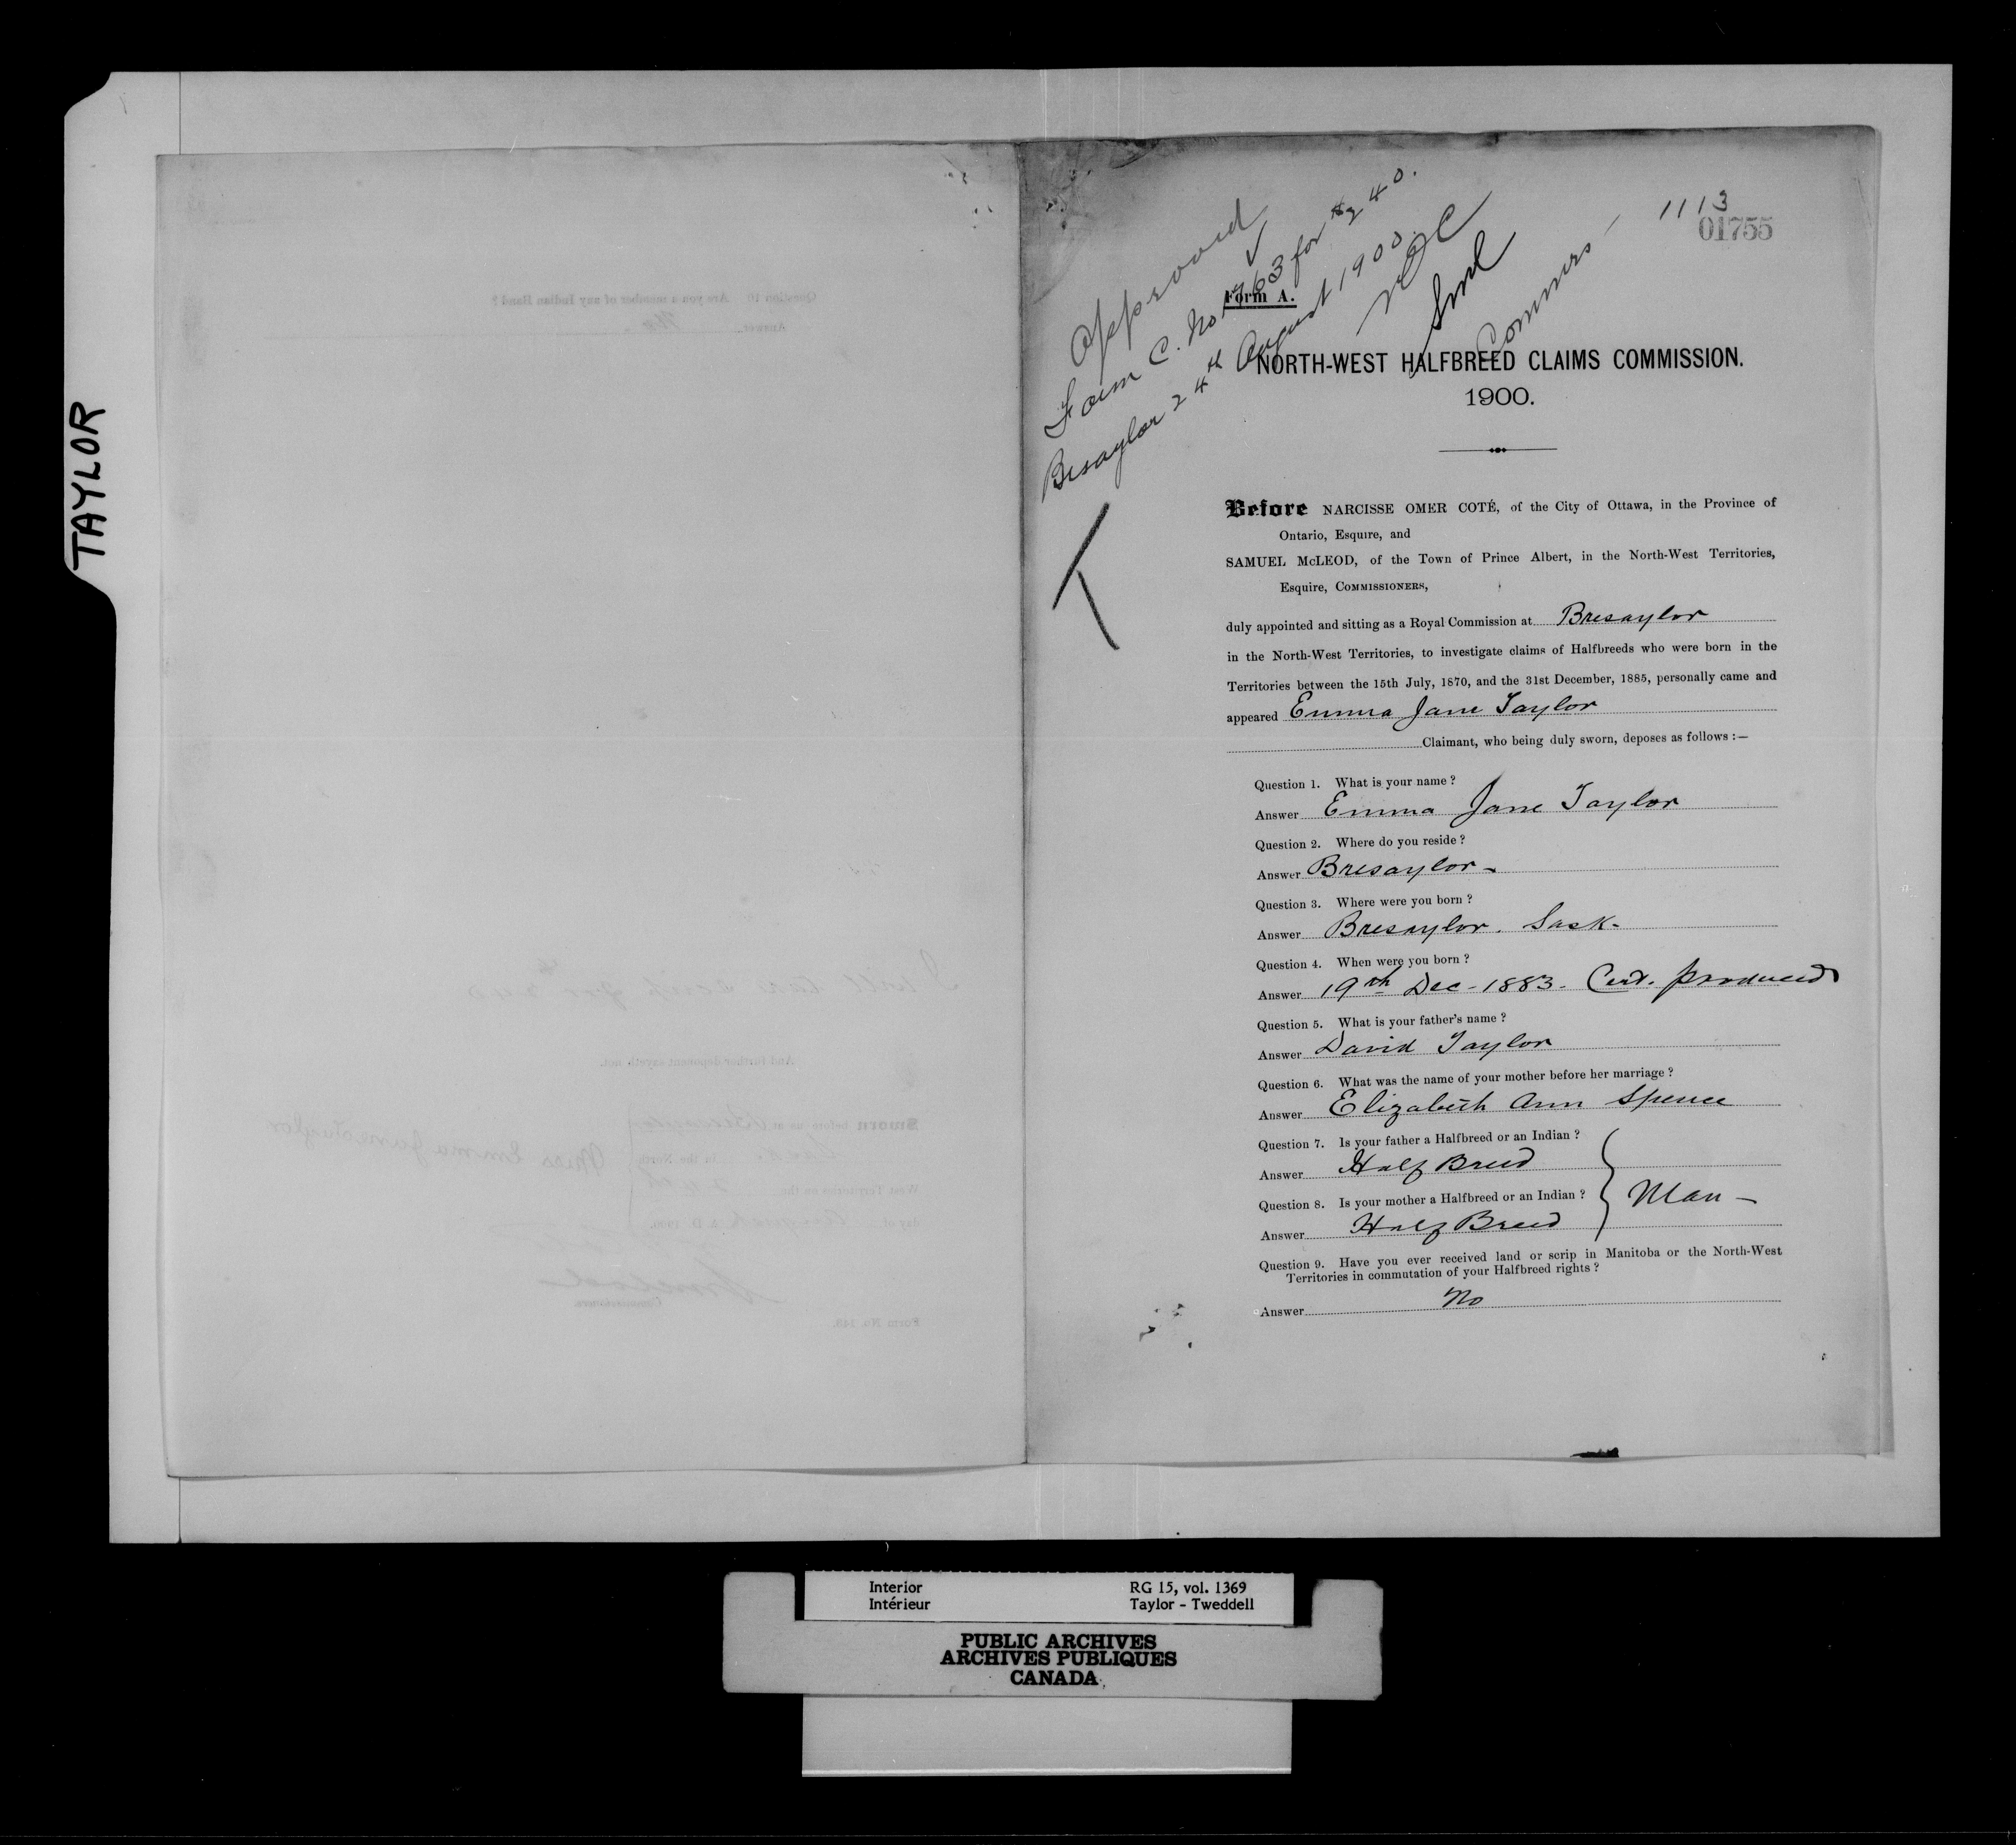 TAYLOR
Approved
Form C. No 1763 for $240.
Bresaylor 24th August 1900.
NOC
SMcL
Commrs
1113
01755
Form A.
NORTH-WEST HALFBREED CLAIMS COMMISSION.
1900.
Before NARCISSE OMER COTÉ, of the City of Ottawa, in the Province of
Ontario, Esquire, and
SAMUEL McLEOD, of the Town of Prince Albert, in the North-West Territories,
Esquire, COMMISSIONERS,
duly appointed and sitting as a Royal Commission at Bresaylor
in the North-West Territories, to investigate claims of Halfbreeds who were born in the
Territories between the 15th July, 1870, and the 31st December, 1885, personally came and
appeared Emma Jane Taylor
Claimant, who being duly sworn, deposes as follows :—
Question 1. What is your name ?
Answer Emma Jane Taylor
Question 2. Where do you reside ?
Answer Bresaylor -
Question 3. Where were you born ?
Answer Bresaylor. Sask-
Question 4. When were you born ?
Answer 19th Dec - 1883 - Cert. produced
Question 5. What is your father's name ?
Answer David Taylor
Question 6. What was the name of your mother before her marriage ?
Answer Elizabeth Ann Spence
Question 7. Is your father a Halfbreed or an Indian ?
Answer Half Breed
Question 8. Is your mother a Halfbreed or an Indian ?
Man -
Answer Half Breed
Question 9. Have you ever received land or scrip in Manitoba or the North-West
Territories in commutation of your Halfbreed rights ?
Answer No
Interior
Intérieur
RG 15, vol. 1369
Taylor - Tweddell
PUBLIC ARCHIVES
ARCHIVES PUBLIQUES
CANADA